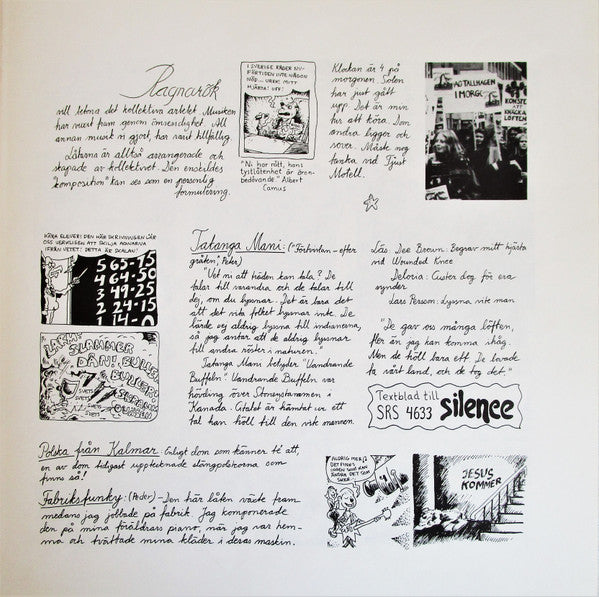 Ragnarök
vill betona det kollektiva arbetet. Musiken
har vuxit fram genom ömsesidighet. All
annan musik vi gjort, har varit tillfällig.
Låtarna är alltså arrangerade och
skapade av kollektivet. Den enskildes
"komposition" kan ses som en personlig
formulering.
I SVERIGE RÅDER NY-
FÖRTIDEN INTE NÅGON
NÖD... VERK MITT
HJÄRTA! UFF!
"Ni har rätt, hans
tystlåtenhet är öron-
bedövande." Albert
Camus
Klockan är 4 på
morgonen. Solen
har just gått
upp. Det är min
tur att köra. Dom
andra ligger och
sover. Måste nog
tanka vid Tjust
Motell.
TALLHAGEN
I MORGO
KONSTE
ATT
KNÄCKA
LÖFTEN
KÄRA ELEVER! DEN HÄR SKRIVNINGEN LÄR
OSS VERKLIGEN ATT SKILJA AGNARNA
IFRÅN VETET! DETTA ÄR SKALAN!
5 65-75
4 64-50
3 49-25
2 24-15
1 14-0
LARM!
SLAMMER
DÅN! BULLER
BULLER!
SVETS
SVETS
Tatanga Mani: ("Förtvivlan - efter
gråten", Peter)
"Vet ni att träden kan tala? De
talar till varandra och de talar till
dej, om du lyssnar. Det är bara det
att det vita folket lyssnar inte. De
lärde sej aldrig lyssna till indianerna,
så jag antar att de aldrig lyssnar
till andra röster i naturen."
Tatanga Mani betyder "Vandrande
Buffeln". Vandrande Buffeln var
hövding över Stoneystammen i
Kanada. Citatet är hämtat ur ett
tal han höll till den vite mannen.
Läs: Dee Brown: Begrav mitt hjärta
vid Wounded Knee
Deloria: Custer dog för era
synder
Lars Persson: Lyssna vite man
"De gav oss många löften,
fler än jag kan komma ihåg.
Men de höll bara ett. De lovade
ta vårt land, och de tog det."
Textblad till
SRS 4633 silence
Polska från Kalmar: Enligt dom som känner te' att,
en av dom tidigast upptecknade slängpolskorna som
finns så!
Fabriksfunky: (Peder) - Den här låten växte fram
medans jag jobbade på fabrik. Jag komponerade
den på mina föräldrars piano, när jag var hem-
ma och tvättade mina kläder i deras maskin.
ALDRIG MER
JESUS
KOMMER